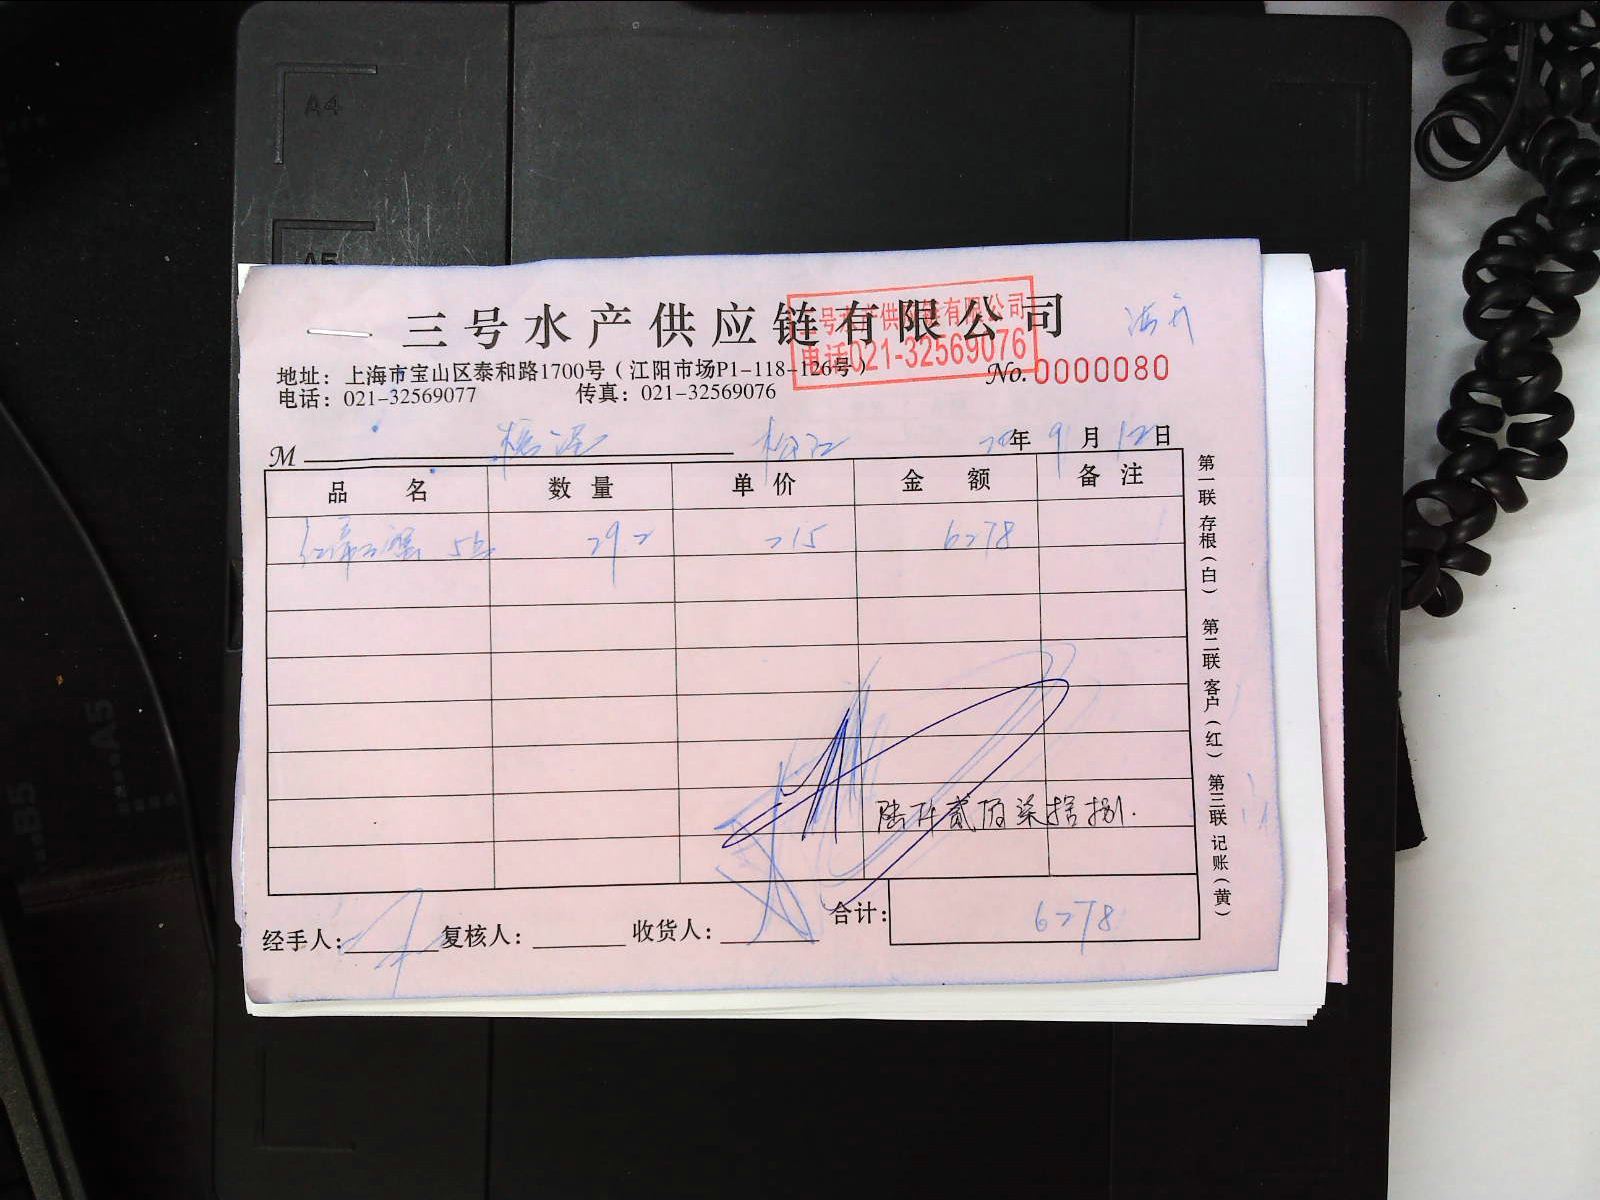 A4
A5
三号水产供应链有限公司
三号水产供应链有限公司
电话021-32569076
地址：上海市宝山区泰和路1700号（江阳市场P1-118-126号）
No. 0000080
电话：021-32569077 传真：021-32569076
M 年 9月12日
品名 数量 单价 金额 备注
5 292 215 6278
陆仟贰佰柒拾捌.
合计： 6278
经手人： 复核人： 收货人：
第一联 存根（白） 第二联 客户（红） 第三联 记账（黄）
A5
B5